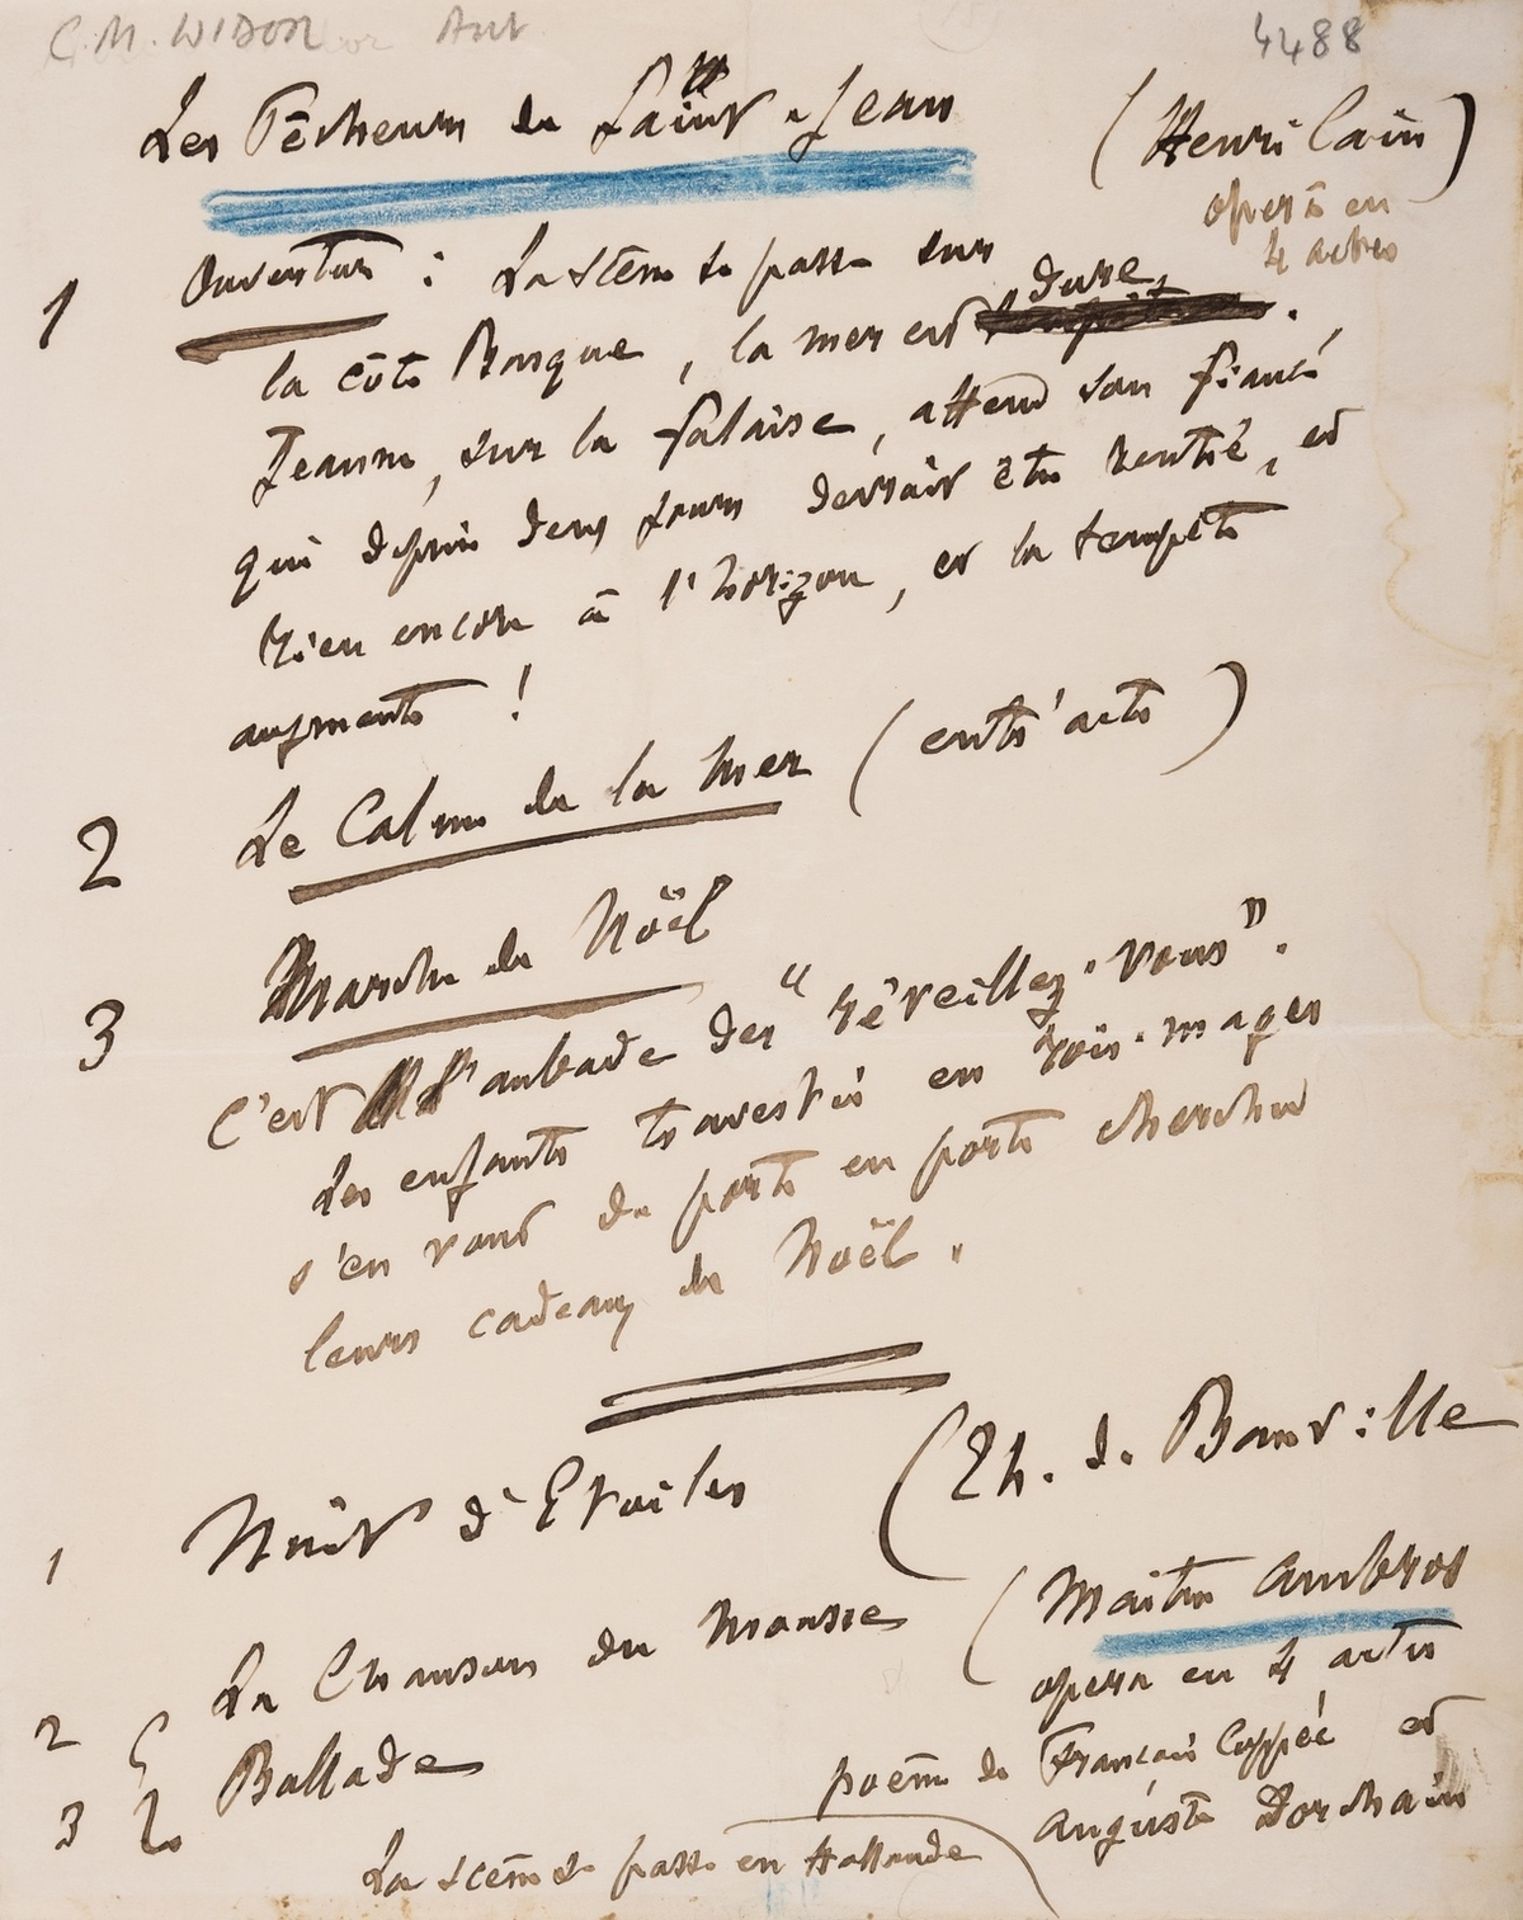 C.M. WIDOR Aut
4488
Les Pêcheurs de Saint-Jean (Henri Cain)
opera en
4 actes
1 Ouverture : La scène se passe sur
la côte Basque, la mer est dure.
Jeanne, sur la falaise, attend son fiancé
qui depuis deux jours devrait être rentré, et
rien encore à l'horizon, et la tempête
augmente !
2 Le Calme de la mer (entr'acte)
3 Marche de Noël
C'est l'aubade des "réveillez-vous".
Les enfants travestis en rois-mages
s'en vont de porte en porte chercher
leurs cadeaux de Noël.
1 Nuit d'Etoiles (Th. de Banville
2 La Chanson du Mousse (Maître Ambros
opera en 4 actes
3 Ballade
poème de François Coppée et
Auguste Dorchain
La scène se passe en Hollande